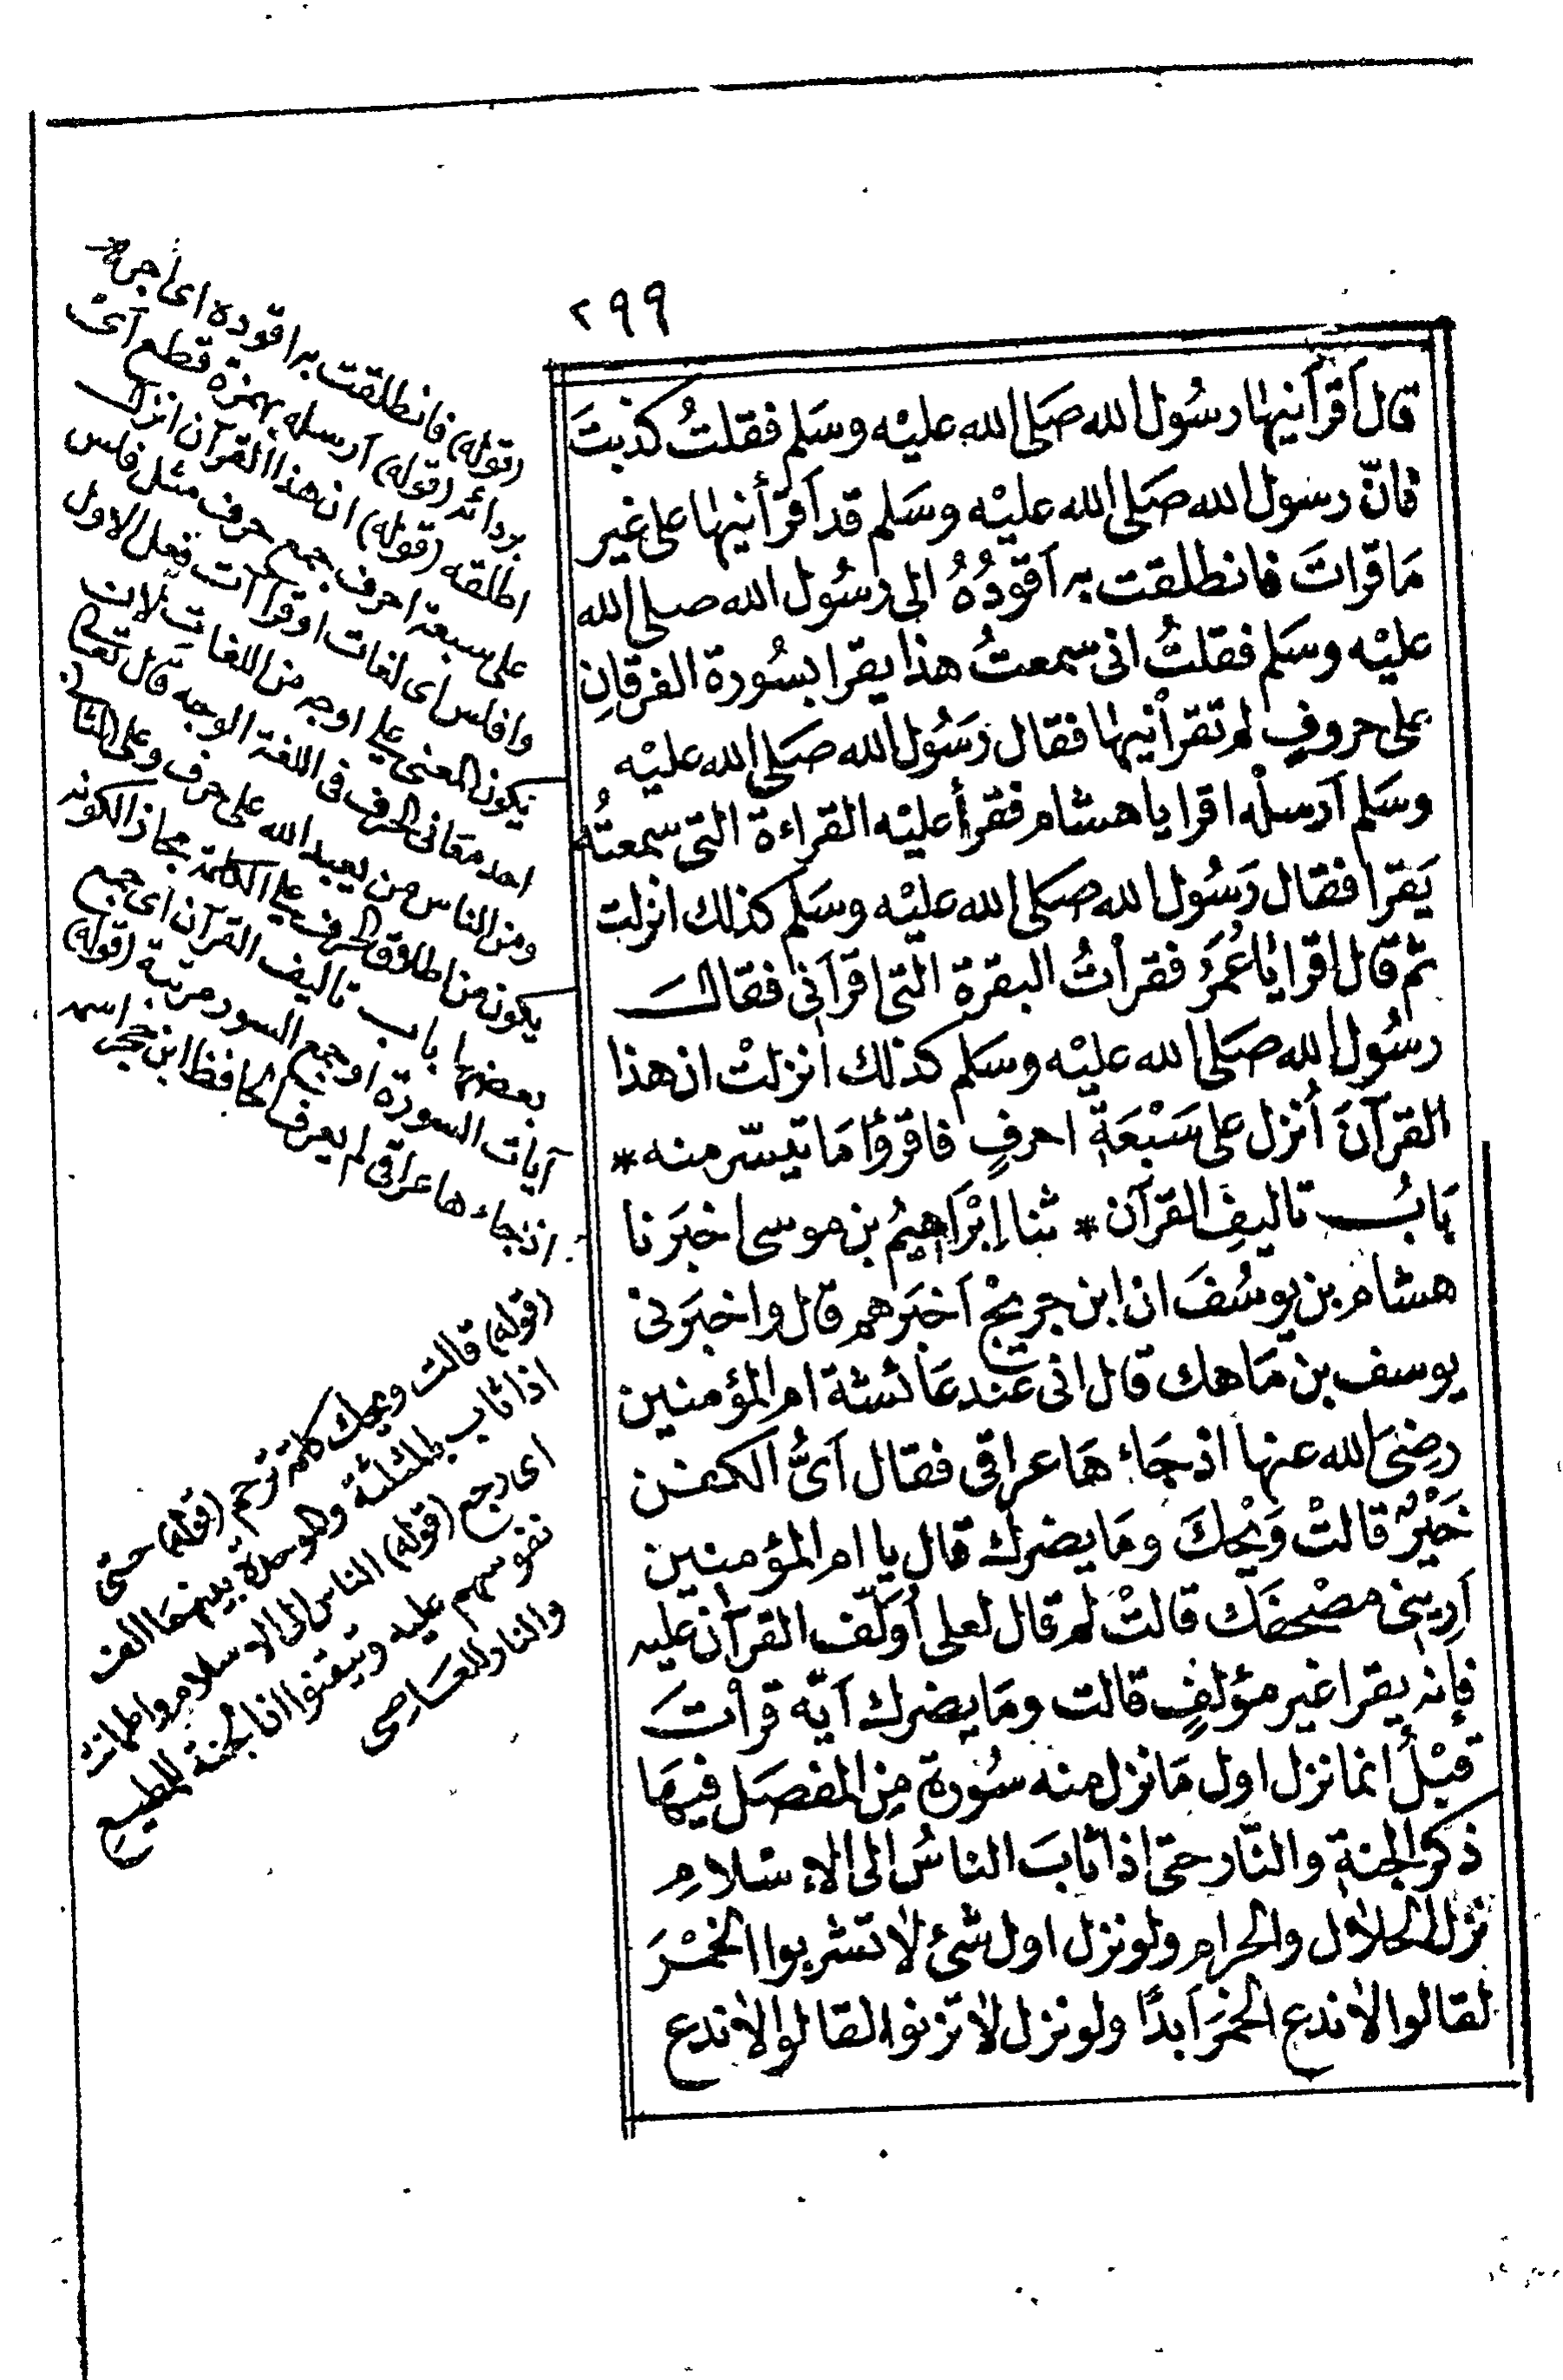 ٢٩٩
قال أقرأنيها رسُول الله صَلى الله عليْه وسَلم فقلتُ كذبتَ
فانّ رسول الله صَلى الله عليْه وسَلم قد أقرأنيها على غير
مَا قرات فانطلقت به أقودُهُ الى رَسُول الله صلى الله
عليْه وسَلم فقلتُ انى سمعتُ هذا يقرا بسُورة الفرقانِ
على حروفٍ لم تقرأنيها فقال رَسُول الله صَلى الله عليْه
وسَلم أرسلْه اقرا يا هشام فقرأ عليْه القراءة التى سمعتُه
يَقرا فقال رَسُول الله صَلى الله عليْه وسَلم كذلك انزلت
ثم قال اقرا يَا عُمَرُ فقرأتُ البقرة التى اقرأنى فقال
رسُول الله صَلى الله عليْه وسَلم كذلك أنزلتْ ان هذا
القرآنَ أُنزل على سَبْعَةِ احرفٍ فاقرؤا مَا تيسّر منه *
بَابُ تاليفِ القرآن * ثنا إبْرَاهيمُ بن موسى اخبَرنا
هشام بن يوسُفَ ان ابن جريْج أخبَرهم قال واخبَرنى
يوسف بن مَاهك قال انى عند عَائشة ام المؤمنين
رضىَ الله عنها اذ جَاءَهَا عراقى فقال أىُّ الكفن
خَيْرٌ قالتْ وَيْحكَ ومَا يضرك قال يا ام المؤمنين
أرينى مصْحفك قالتْ لم قال لعلى أُوَلّف القرآن عليه
فإنه يقرا غير مؤلفٍ قالت ومَا يضرك أيّه قرأتَ
قبْلُ انما نزل اول مَا نزل منه سُورة مِن المفصَل فيهَا
ذكر الجنة والنَّار حتى اذا ثابَ الناسُ الى الاسْلامِ
نزل الحلال والحرام ولو نزل اول شئ لا تشربوا الخمْرَ
لقالوا لا ندع الخمَر أبدًا ولو نزل لا تزنوا لقالوا لا ندع
(قوله) فانطلقت به اقوده اى اجره
بردائه (قوله) أرسله بهمزة قطع أى
اطلقه (قوله) ان هذا القرآن انزل
على سبعة احرف جمع حرف مثل فلس
وافلس اى لغات او قراآت فعلى الاول
يكون المعنى على اوجه من اللغات لان
احد معانى الحرف فى اللغة الوجه قال تعالى
ومن الناس من يعبد الله على حرف وعلى الثانى
يكون من اطلاق الحرف على الكلمة مجاز الكونه
بعضها باب تاليف القرآن اى جمع
آيات السورة او جمع السور مرتبة (قوله)
اذ جاءها عراقى لم يعرف الحافظ ابن حجر اسمه
(قوله) قالت ويحك كلمة ترحم (قوله) حتى
اذا ثاب بالمثلثة والموحدة بينهما الف
اى رجع (قوله) الناس الى الاسلام واطمانت
نفوسهم عليه وتيقنوا ان الجنة للمطيع
والنار للعاصى